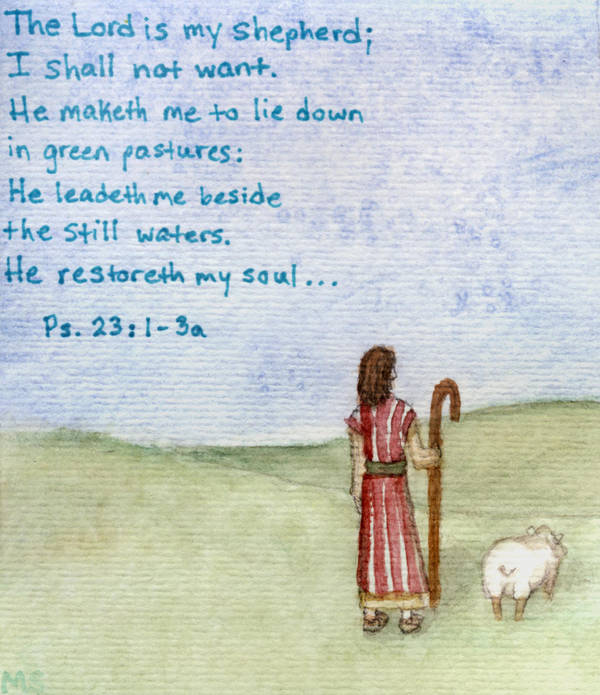 The Lord is my shepherd;
I shall not want.
He maketh me to lie down
in green pastures:
He leadeth me beside
the still waters.
He restoreth my soul...
Ps. 23:1-3a
MS